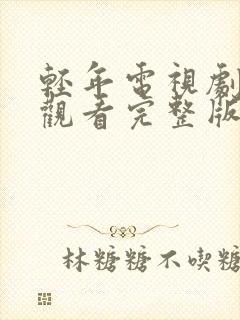 輕年電視劇
觀看完整版
林糖糖不喫糖